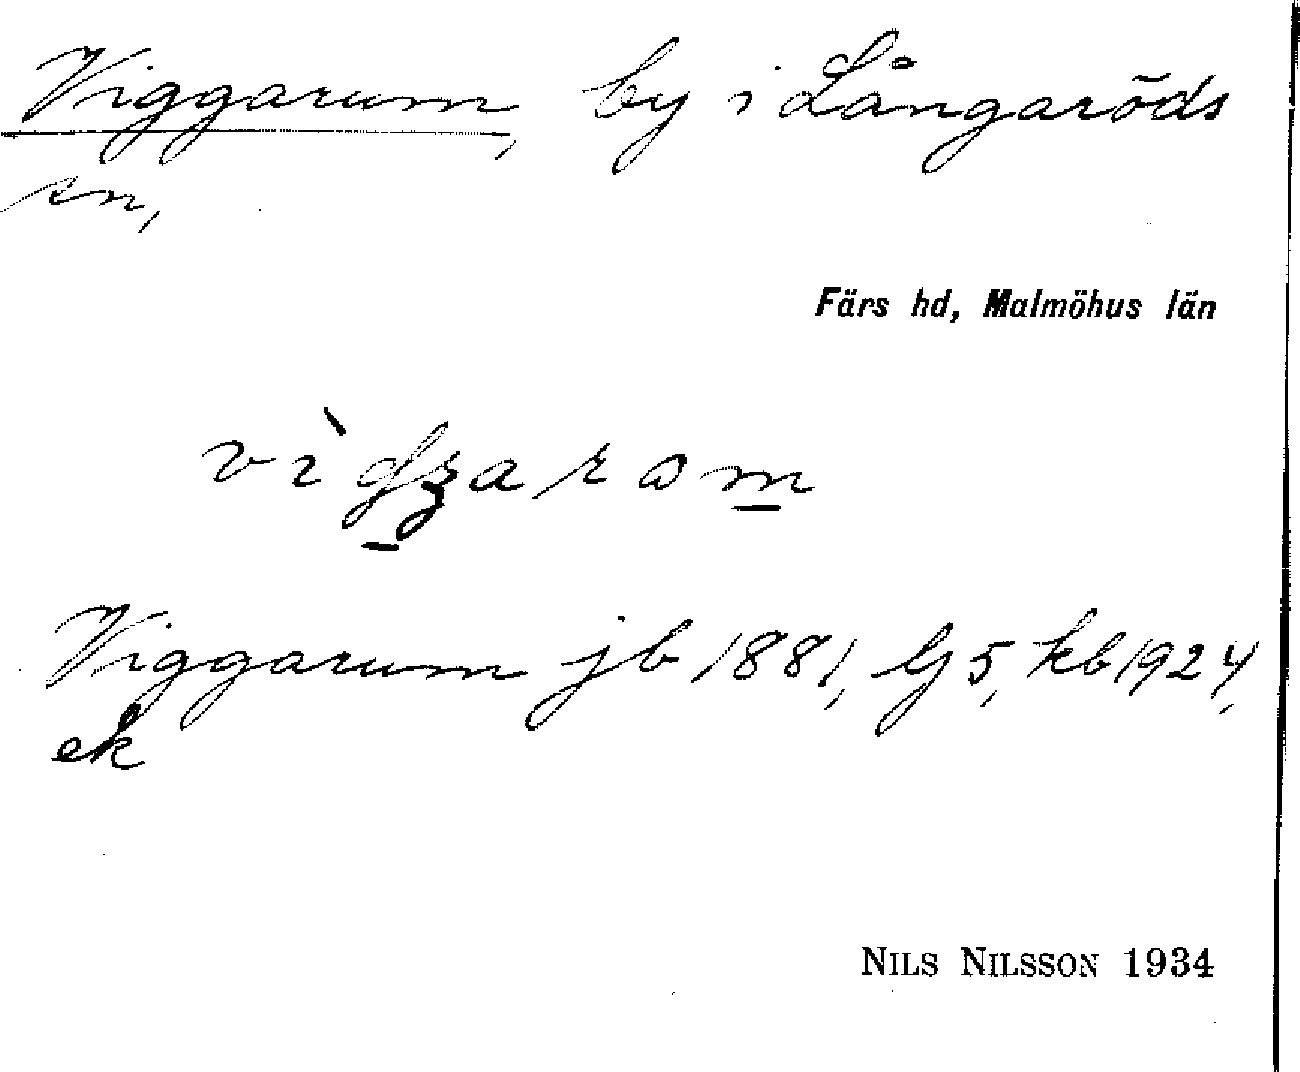 Viggarum, by i Långaröds
sn,
Färs hd, Malmöhus län
Viggarum jb 1881, G 5, kb 1924,
ek
NILS NILSSON 1934